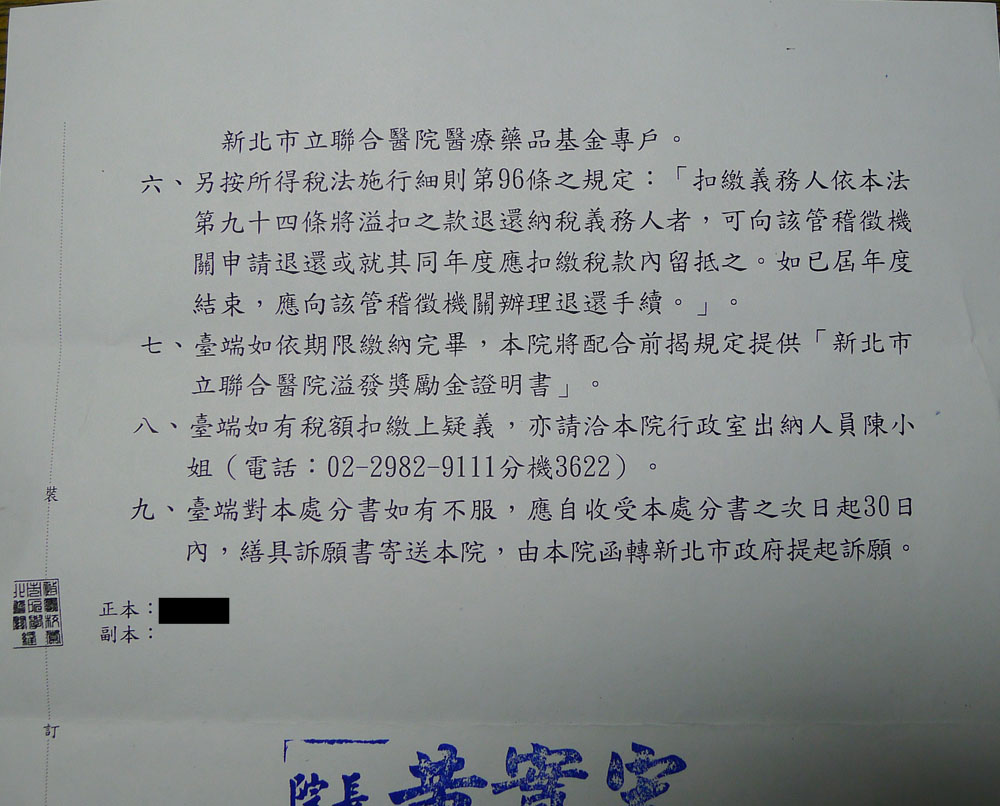 新北市立聯合醫院醫療藥品基金專戶。
六、另按所得稅法施行細則第96條之規定：「扣繳義務人依本法
第九十四條將溢扣之款退還納稅義務人者，可向該管稽徵機
關申請退還或就其同年度應扣繳稅款內留抵之。如已屆年度
結束，應向該管稽徵機關辦理退還手續。」。
七、臺端如依期限繳納完畢，本院將配合前揭規定提供「新北市
立聯合醫院溢發獎勵金證明書」。
八、臺端如有稅額扣繳上疑義，亦請洽本院行政室出納人員陳小
姐（電話：02-2982-9111分機3622）。
九、臺端對本處分書如有不服，應自收受本處分書之次日起30日
內，繕具訴願書寄送本院，由本院函轉新北市政府提起訴願。
裝
正本：
副本：
訂
院長